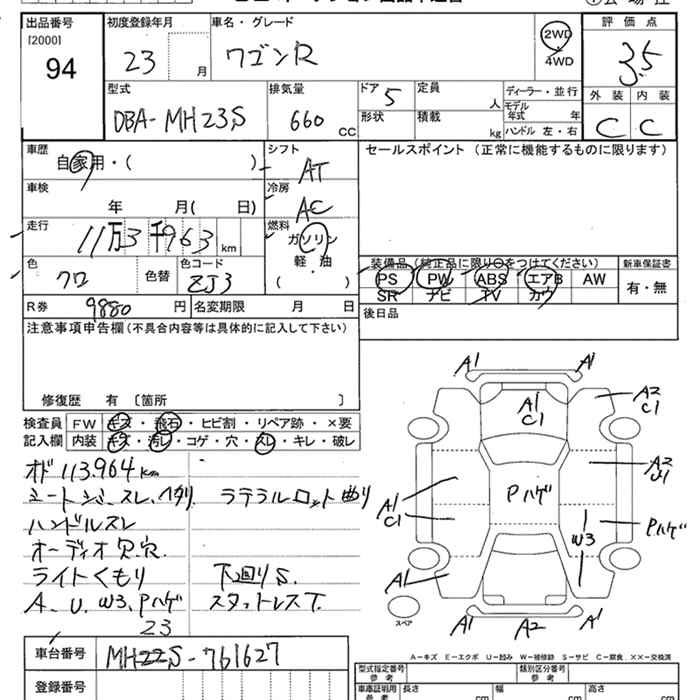 出品番号
[2000]
94
初度登録年月
23 月
車名・グレード
ワゴンR
2WD
・
4WD
評価点
3.5
外装 内装
C C
型式
DBA-MH23S
排気量
660 CC
ドア
5
形状
定員
人
積載
kg
ディーラー・並行
モデル年式 年
ハンドル 左・右
車歴
自家用・( )
シフト
AT
セールスポイント (正常に機能するものに限ります)
車検
年 月( 日)
冷房
AC
走行
11万3千963 km
燃料
ガソリン
軽・油
( )
色
クロ
色替
色コード
ZJ3
装備品 (純正品に限り○をつけてください)
PS PW ABS エアB AW
SR ナビ TV カワ
新車保証書
有・無
R券 9880 円
名変期限 月 日
後日品
注意事項申告欄(不具合内容等は具体的に記入して下さい)
修復歴 有 〔箇所 〕
検査員記入欄
FW キズ・飛石・ヒビ割・リペア跡・×要
内装 キズ・汚レ・コゲ・穴・スレ・キレ・破レ
オド113.964km
シートシミ、スレ、ヘタリ
ハンドルスレ
オーディオ欠.穴.
ライトくもり
A、U、W3、Pハゲ
23
ラテラルロット曲り
下廻りS.
スタットレスT.
A1 A1
A1
C1
A2
C1
A2
U1
A1
C1
Pハゲ
Pハゲ
W3
A1
A1 A2 A1
スペア
A−キズ E−エクボ U−凹み W−補修跡 S−サビ C−腐食 ××−交換済
車台番号 MH22S-761627
登録番号
型式指定番号
参考
類別区分番号
参考
車庫証明用
参考
長さ cm
幅 cm
高さ cm